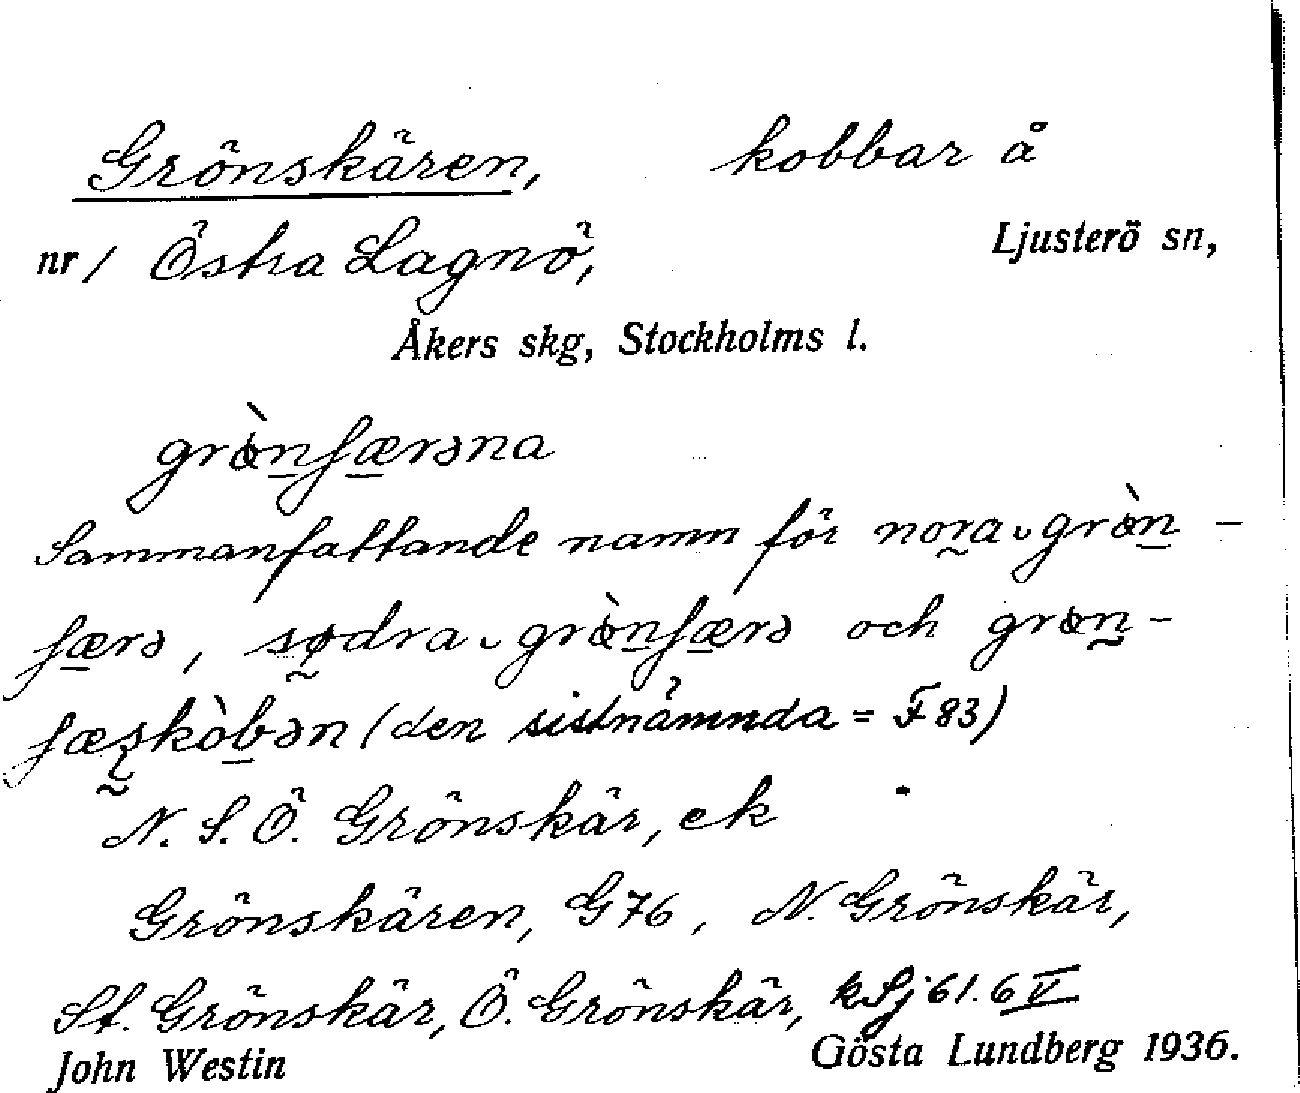 Grönskären, kobbar å
nr / Östra Lagnö, Ljusterö sn,
Åkers skg, Stockholms l.
grὼnʃærəna
Sammanfattande namn för nora ᴗ grὼn -
ʃærə, sødra ᴗ grὼnʃærə och grωn -
ʃæʂkòbən (den sistnämnda = F 83)
N. S. Ö. Grönskär, ek
Grönskären, G 76, N. Grönskär,
St. Grönskär, Ö. Grönskär, kSj 61.6 V
John Westin Gösta Lundberg 1936.